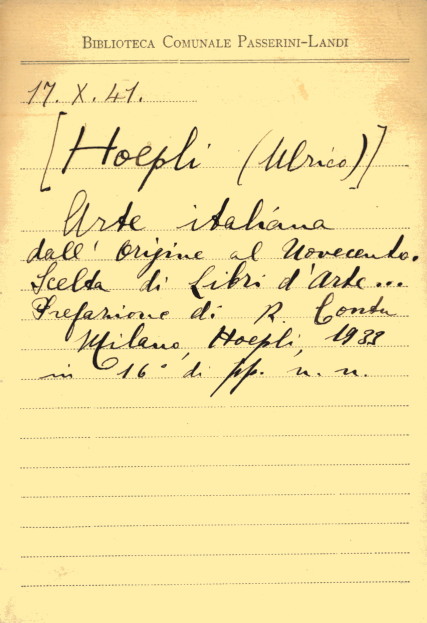 BIBLIOTECA COMUNALE PASSERINI-LANDI
17. X. 41.
[Hoepli (Ulrico)]
Arte italiana
dall' origine al Novecento.
Scelta di Libri d'Arte...
Prefazione di R. Contu
Milano, Hoepli, 1933
in 16° di pp. n. n.